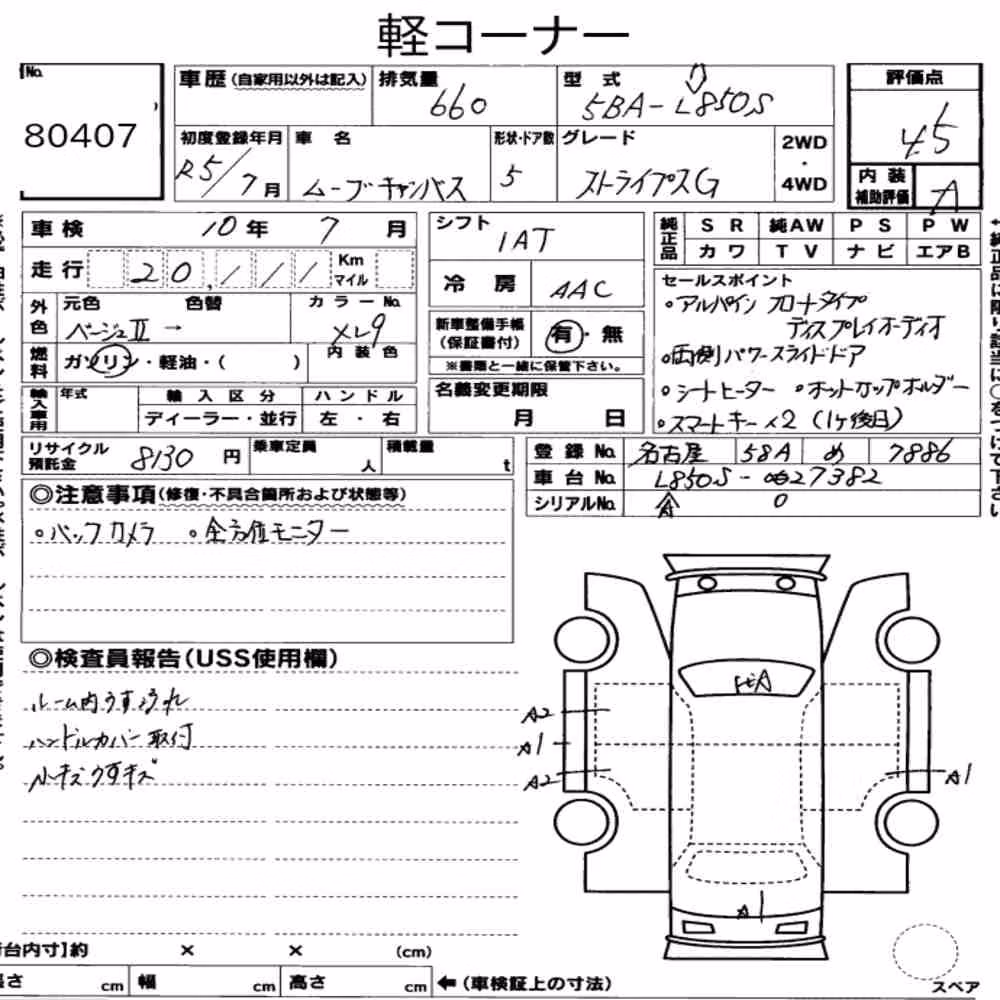 軽コーナー
No.
80407
車歴(自家用以外は記入)
排気量
660
型式
5BA-L850S
評価点
4.5
初度登録年月
R5/7月
車名
ムーブキャンバス
形状・ドア数
5
グレード
ストライプスG
2WD
・
4WD
内装
補助評価
A
車検
10年
7
月
走行
20,111
Km
マイル
外色
元色
ベージュⅡ →
色替
カラーNo.
XL9
燃料
ガソリン・軽油・( )
内装色
輸入車用
年式
輸入区分
ディーラー・並行
ハンドル
左・右
シフト
IAT
冷房
AAC
新車整備手帳
(保証書付)
有・無
※書類と一緒に保管下さい。
名義変更期限
月 日
純正品
SR
純AW
PS
PW
カワ
TV
ナビ
エアB
セールスポイント
○アルパイン フロートタイプ
ディスプレイオーディオ
○両側パワースライドドア
○シートヒーター ○ホットカップホルダー
○スマートキー×2 (1ヶ後日)
リサイクル
預託金
8130円
乗車定員
人
積載量
t
登録No.
名古屋
58A
め
7886
車台No.
L850S-0027382
シリアルNo.
0
◎注意事項(修復・不具合箇所および状態等)
○バックカメラ ○全方位モニター
◎検査員報告(USS使用欄)
ルーム内うすヨゴレ
ハンドルカバー取付
小キズうすキズ
A2
A1
A2
A1
A1
台内寸]約
×
×
(cm)
cm
幅
cm
高さ
cm
←(車検証上の寸法)
スペア